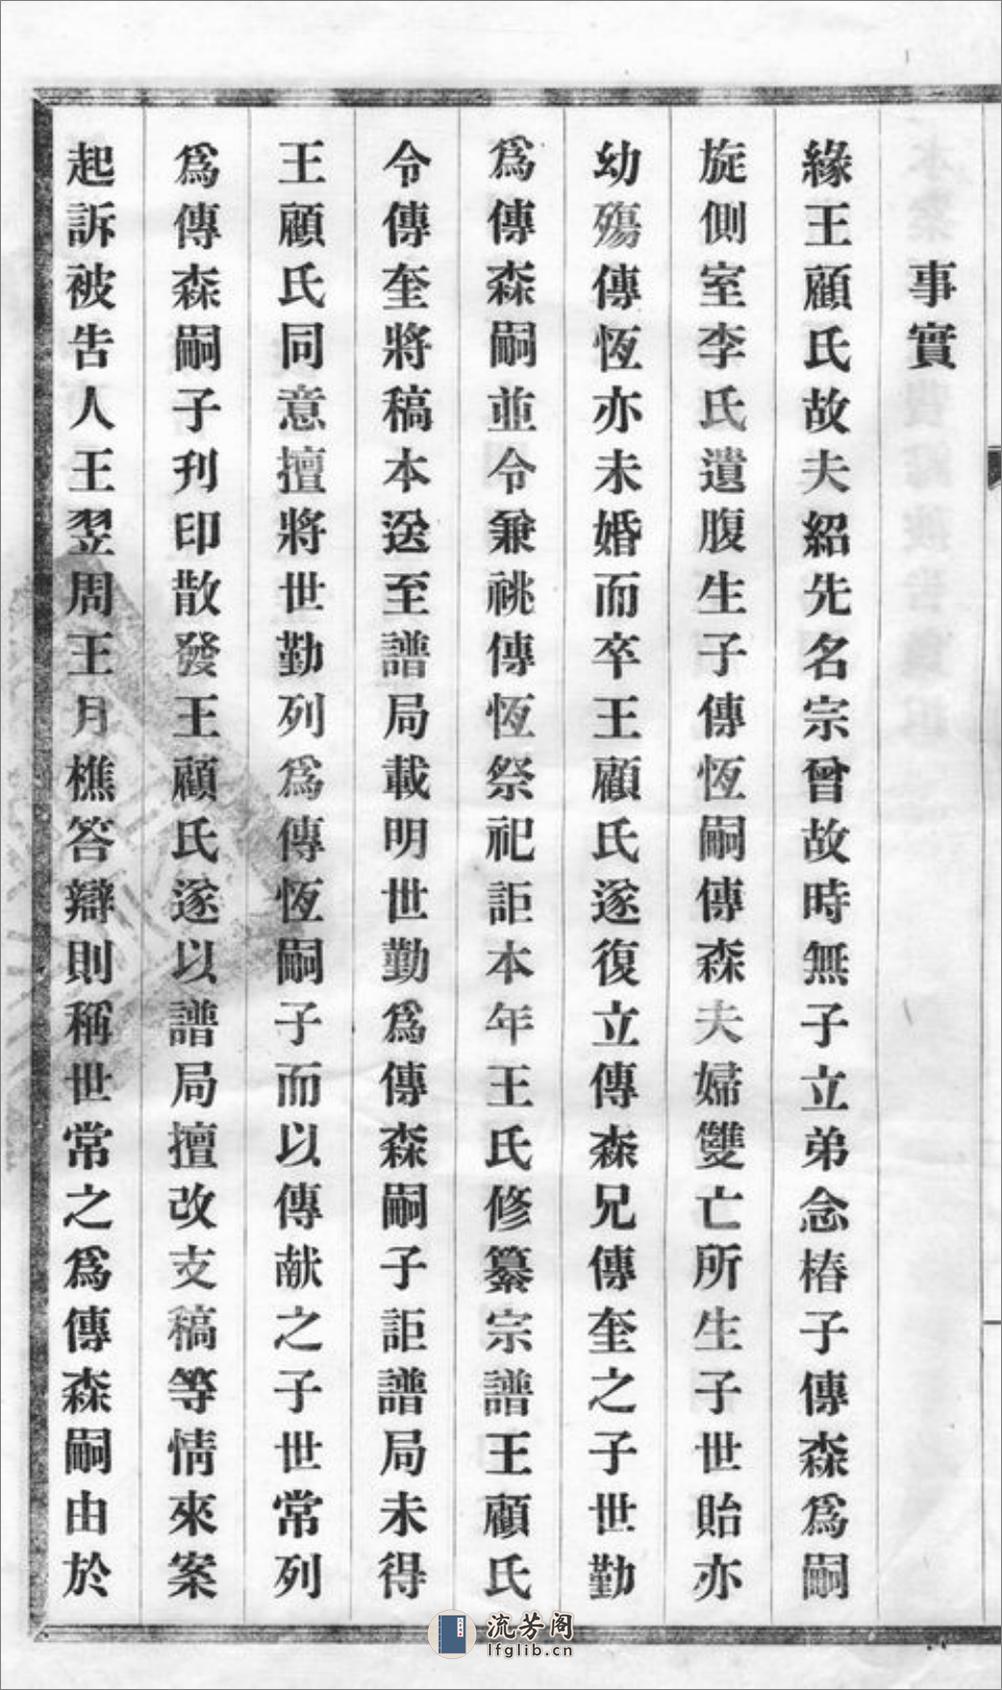 事實
緣王顧氏故夫紹先名宗曾故時無子立弟念椿子傳森爲嗣
旋側室李氏遺腹生子傳恆嗣傳森夫婦雙亡所生子世貽亦
幼殤傳恆亦未婚而卒王顧氏遂復立傳森兄傳奎之子世勤
爲傳森嗣並令兼祧傳恆祭祀詎本年王氏修纂宗譜王顧氏
令傳奎將稿本送至譜局載明世勤爲傳森嗣子詎譜局未得
王顧氏同意擅將世勤列爲傳恆嗣子而以傳献之子世常列
爲傳森嗣子刋印散發王顧氏遂以譜局擅改支稿等情來案
起訴被告人王翌周王月樵答辯則稱世常之爲傳森嗣由於
流芳阁
lfglib.cn